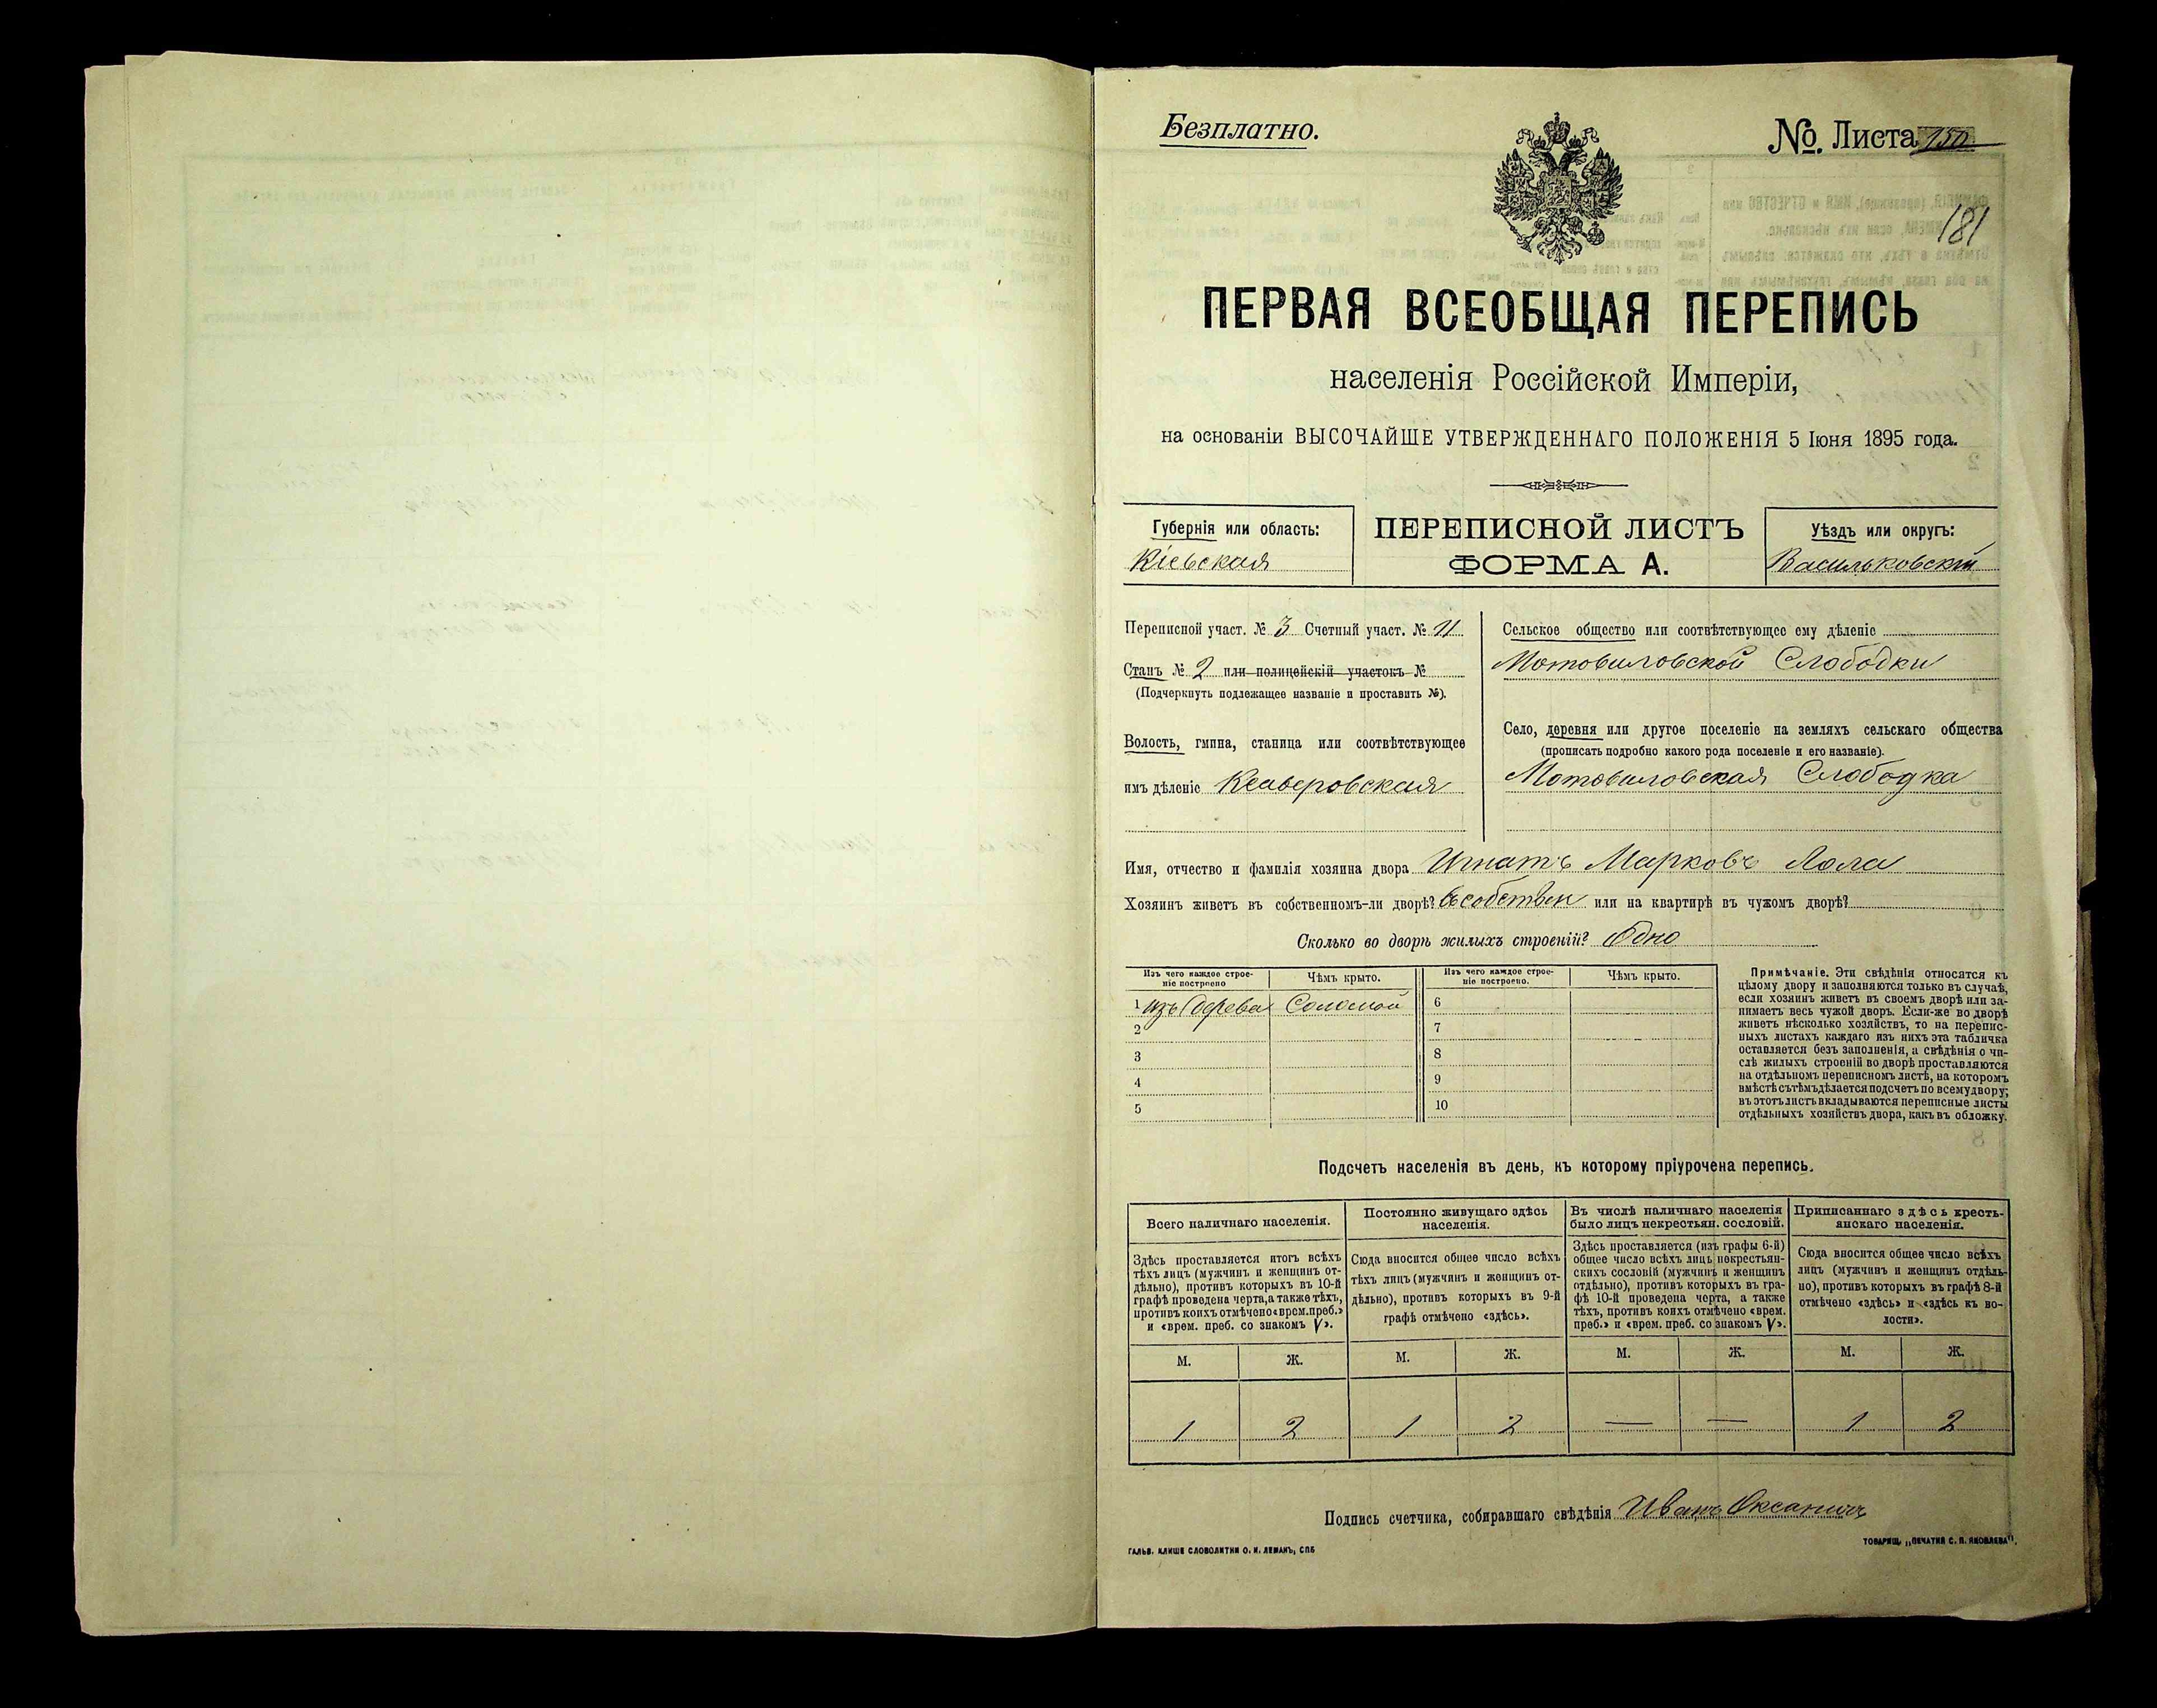 Безплатно.
№. Листа 150
181
ПЕРВАЯ ВСЕОБЩАЯ ПЕРЕПИСЬ
населенія Россійской Имперіи,
на основаніи ВЫСОЧАЙШЕ УТВЕРЖДЕННАГО ПОЛОЖЕНІЯ 5 Іюня 1895 года.
Губернія или область:
Кіевская
ПЕРЕПИСНОЙ ЛИСТЪ
ФОРМА А.
Уѣздъ или округъ:
Васильковскій
Переписной участ. № 3 Счетный участ. № 11
Станъ № 2 или полицейскій участокъ №
(Подчеркнуть подлежащее названіе и проставить №).
Волость, гмина, станица или соотвѣтствующее
имъ дѣленіе Ксаверовская
Сельское общество или соотвѣтствующее ему дѣленіе
Мотовиловской Слободки
Село, деревня или другое поселеніе на земляхъ сельскаго общества
(прописать подробно какого рода поселеніе и его названіе).
Мотовиловская Слободка
Имя, отчество и фамилія хозяина двора Игнатъ Марковъ Лола
Хозяинъ живетъ въ собственномъ-ли дворѣ? въ собствен или на квартирѣ въ чужомъ дворѣ?
Сколько во дворѣ жилыхъ строеній? Одно
Изъ чего каждое строе-
ніе построено
Чѣмъ крыто.
Изъ чего каждое строе-
ніе построено.
Чѣмъ крыто.
1 изъ дерева Соломой
2
3
4
5
6
7
8
9
10
Примѣчаніе. Эти свѣдѣнія относятся къ
цѣлому двору и заполняются только въ случаѣ,
если хозяинъ живетъ въ своемъ дворѣ или за-
нимаетъ весь чужой дворъ. Если-же во дворѣ
живетъ нѣсколько хозяйствъ, то на перепис-
ныхъ листахъ каждаго изъ нихъ эта табличка
оставляется безъ заполненія, а свѣдѣнія о чи-
слѣ жилыхъ строеній во дворѣ проставляются
на отдѣльномъ переписномъ листѣ, на которомъ
вмѣстѣ съ тѣмъ дѣлается подсчетъ по всему двору;
въ этотъ листъ вкладываются переписные листы
отдѣльныхъ хозяйствъ двора, какъ въ обложку.
Подсчетъ населенія въ день, къ которому пріурочена перепись.
Всего наличнаго населенія.
Здѣсь проставляется итогъ всѣхъ
тѣхъ лицъ (мужчинъ и женщинъ от-
дѣльно), противъ которыхъ въ 10-й
графѣ проведена черта, а также тѣхъ,
противъ коихъ отмѣчено «врем. преб.»
и «врем. преб. со знакомъ V».
Постоянно живущаго здѣсь
населенія.
Сюда вносится общее число всѣхъ
тѣхъ лицъ (мужчинъ и женщинъ от-
дѣльно), противъ которыхъ въ 9-й
графѣ отмѣчено «здѣсь».
Въ числѣ наличнаго населенія
было лицъ некрестьян. сословій.
Здѣсь проставляется (изъ графы 6-й)
общее число всѣхъ лицъ некрестьян-
скихъ сословій (мужчинъ и женщинъ
отдѣльно), противъ которыхъ въ гра-
фѣ 10-й проведена черта, а также
тѣхъ, противъ коихъ отмѣчено «врем.
преб.» и «врем. преб. со знакомъ V».
Приписаннаго здѣсь кресть-
янскаго населенія.
Сюда вносится общее число всѣхъ
лицъ (мужчинъ и женщинъ отдѣль-
но), противъ которыхъ въ графѣ 8-й
отмѣчено «здѣсь» и «здѣсь къ во-
лости».
М. Ж. М. Ж. М. Ж. М. Ж.
1 2 1 2 — — 1 2
Подпись счетчика, собиравшаго свѣдѣнія Иванъ Оксаничъ
ГАЛЬВ. КЛИШЕ СЛОВОЛИТНИ О. И. ЛЕМАНЪ, СПБ
ТОВАРИЩ. „ПЕЧАТНЯ С. П. ЯКОВЛЕВА".